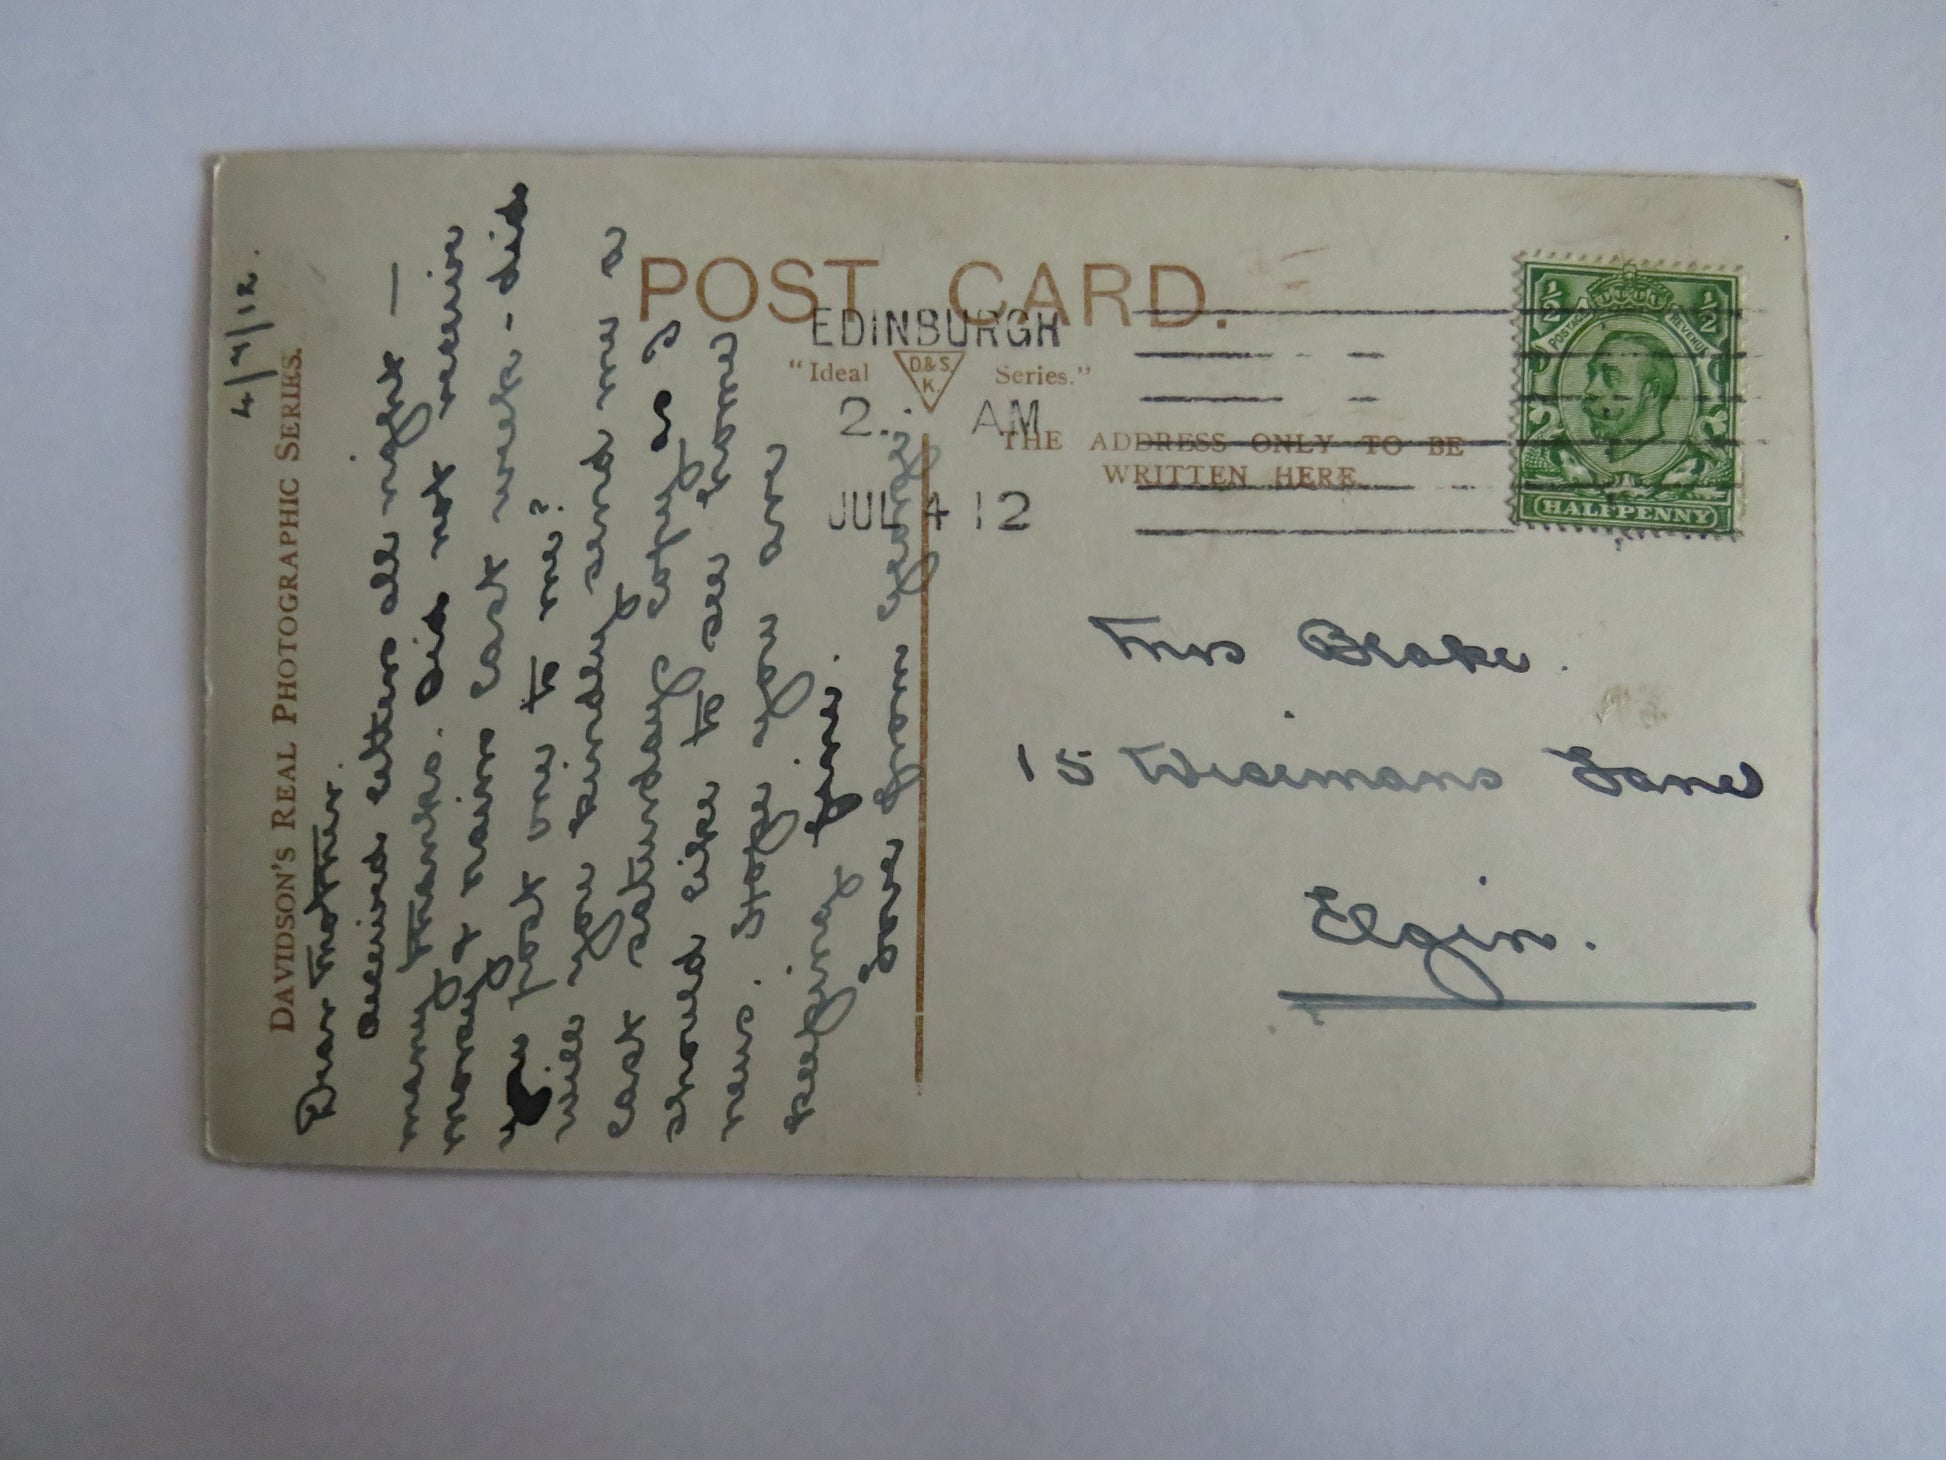 DAVIDSON'S REAL PHOTOGRAPHIC SERIES.
4/7/12.
Dear Mother.
Received letters all right —
many thanks. Did not receive
money & nairn last week - did
you post one to me?
will you kindly send me a
last saturdays copy as I
should like to see home
news. Hope you are
keeping fine.
Love from
POST CARD.
EDINBURGH
"Ideal D&S K. Series."
2. AM
JUL 4 12
THE ADDRESS ONLY TO BE
WRITTEN HERE.
½ POSTAGE REVENUE ½
HALFPENNY
Mrs Blake.
15 Wisemans Lane
Elgin.